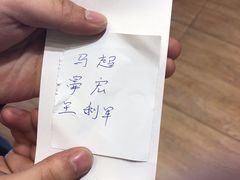 马超
常宏
王利军